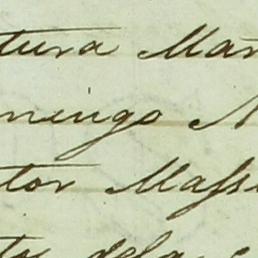 tura Mar
mingo N
tor Mass
dela